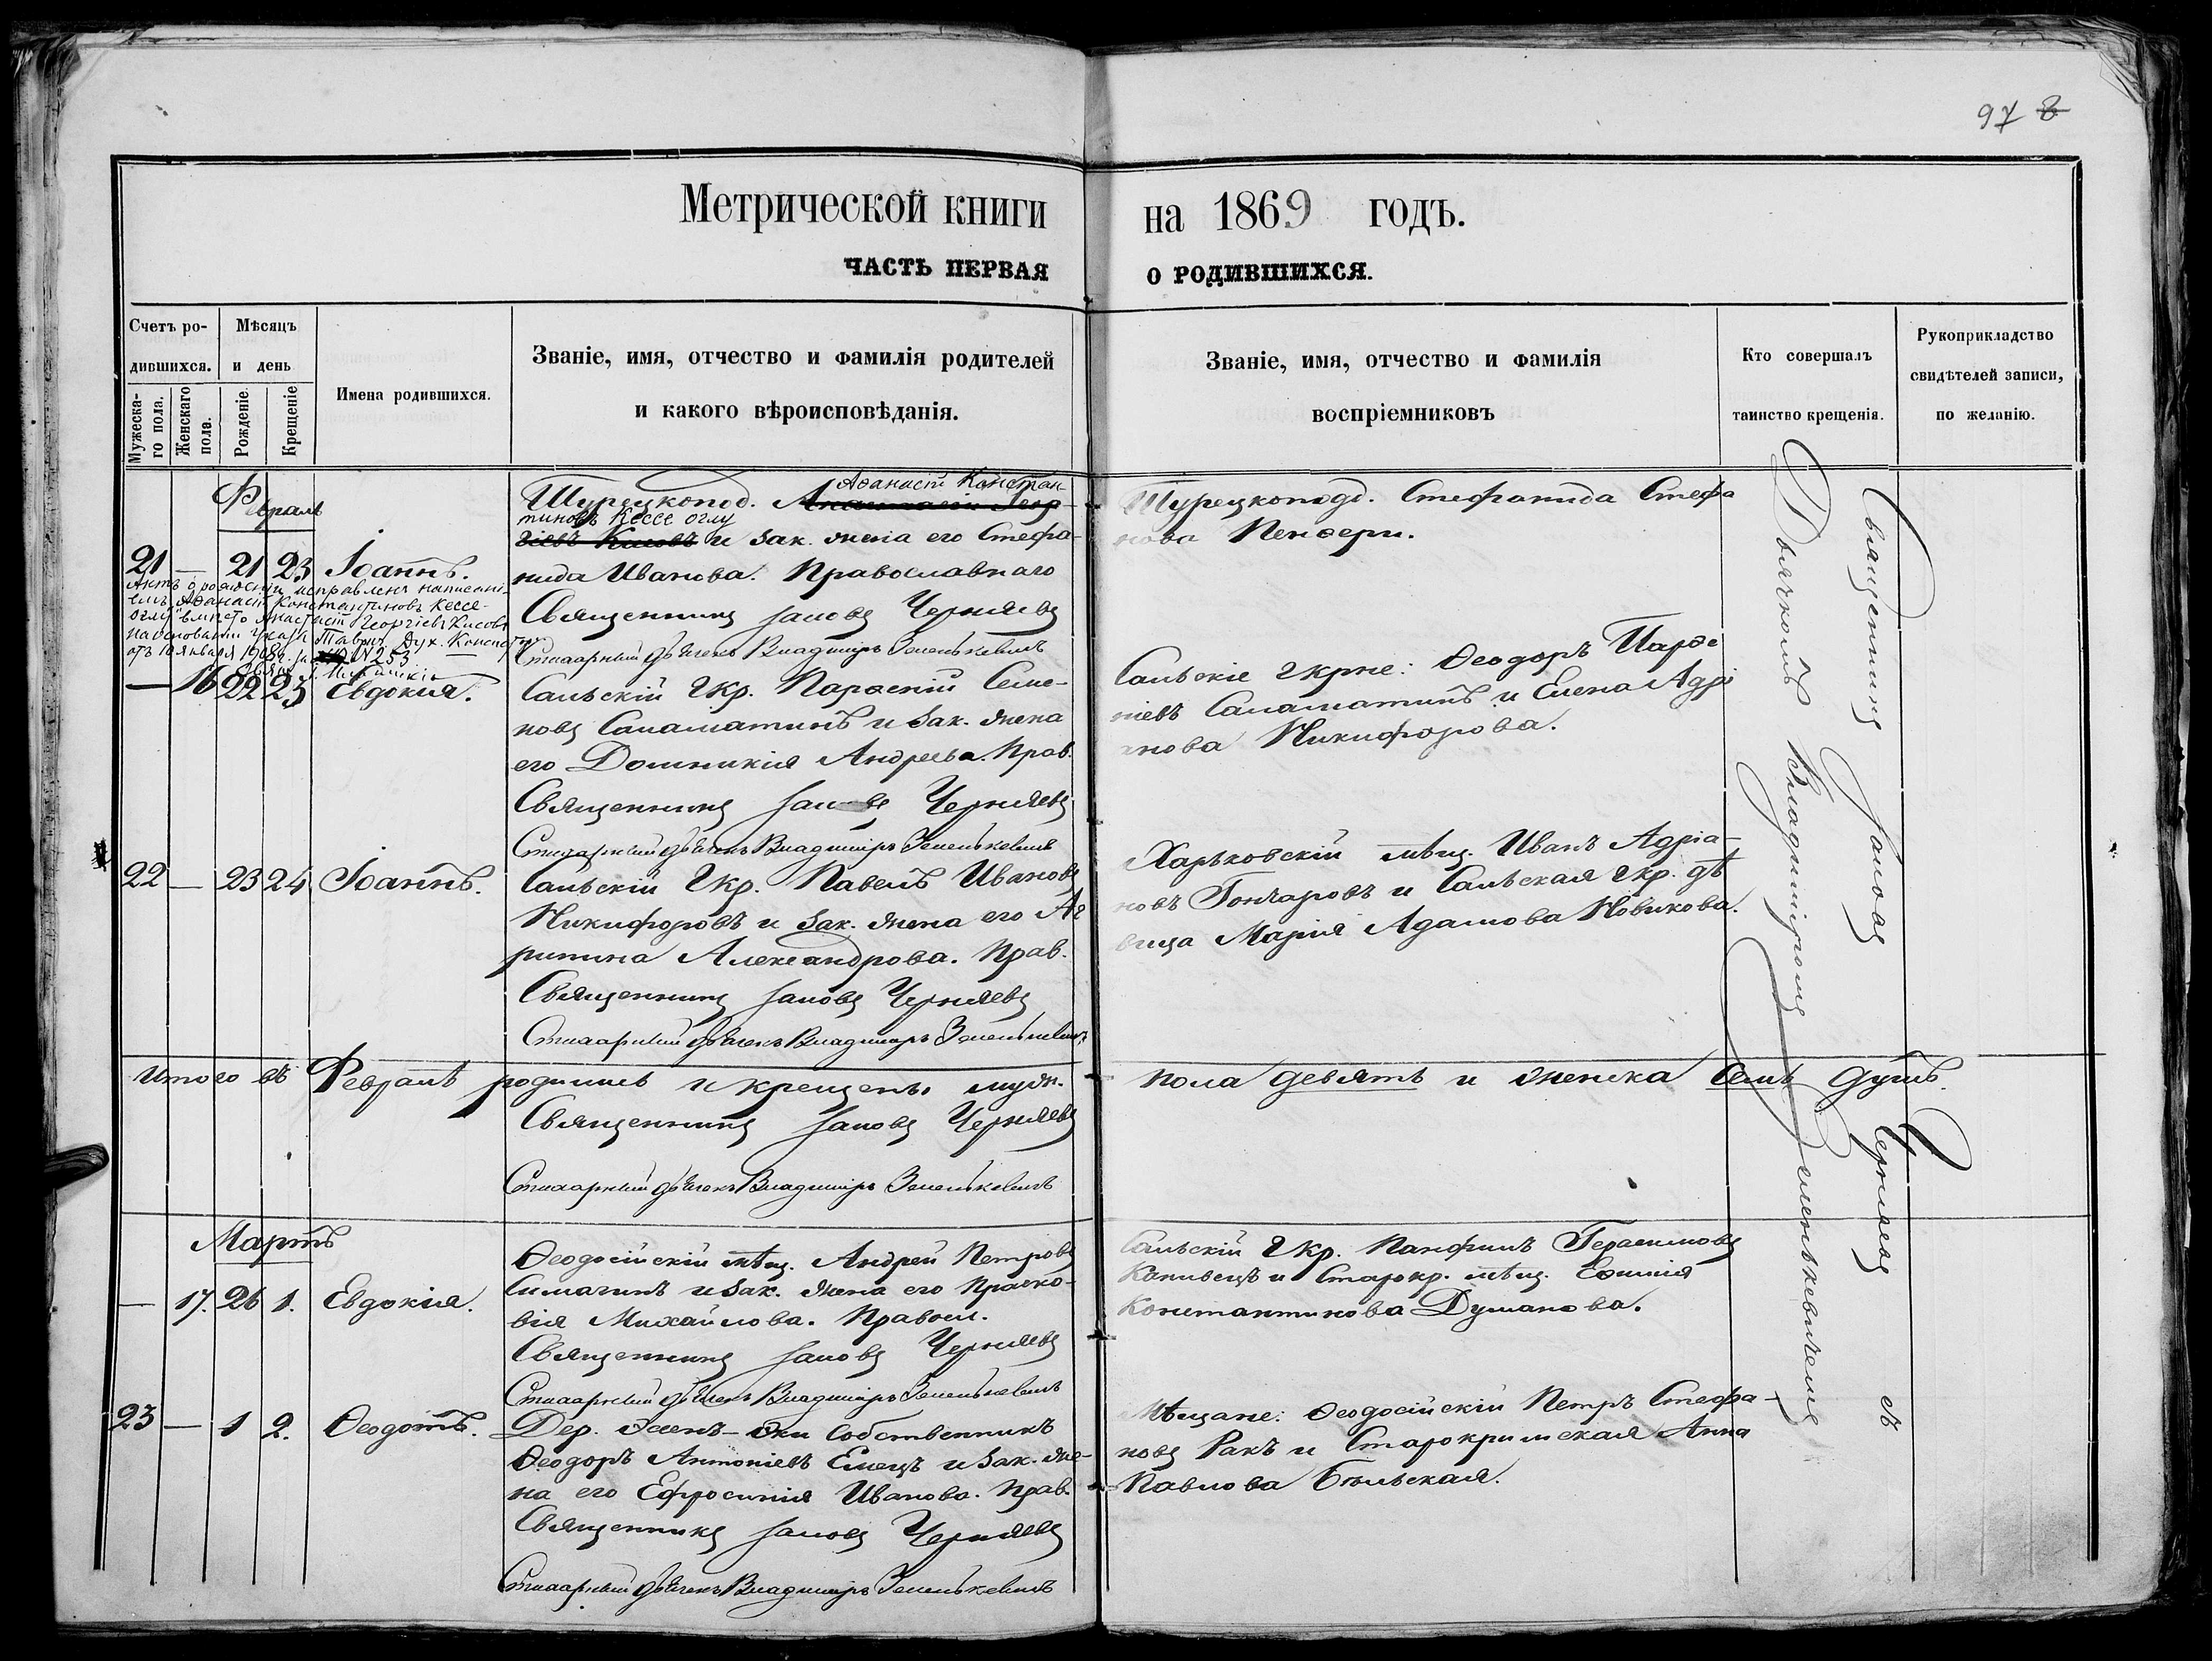 97 8
Метрической книги на 1869 годъ.
ЧАСТЬ ПЕРВАЯ О РОДИВШИХСЯ.
Счетъ ро-
дившихся.
Мужеска-
го пола.
Женскаго
пола.
Мѣсяцъ
и день
Рожденіе.
Крещеніе
Имена родившихся.
Званіе, имя, отчество и фамилія родителей
и какого вѣроисповѣданія.
Званіе, имя, отчество и фамилія
воспріемниковъ
Кто совершалъ
таинство крещенія.
Рукоприкладство
свидѣтелей записи,
по желанію.
Февраль
21 — 21 23 Іоаннъ.
Аѳанасій Констан-
Турецкопод. Анастасій Геор-
тиновъ Кессе оглу
гіевъ Кисовъ и зак. жена его Стефа-
нида Иванова. Православнаго
Священникъ Іаковъ Черняевъ
Стихарный дьячекъ Владиміръ Зеленькевичъ
Турецкоподд. Стефанида Стефа
нова Пендери.
Актъ о рожденіи исправленъ написані-
емъ „Аѳанасій Константиновъ Кессе-
оглу" вмѣсто Анастасій Георгіевъ Кисовъ
на основаніи указа Тавр. Дух. Консист.
отъ 10 января 1908 г. за № 253
— 16 22 23 Евдокия.
Сальскій Гкр. Параскій Семе-
новъ Саламатинъ и зак. жена
его Домникія Андреева. Прав.
Священникъ Іаковъ Черняевъ
Стихарный дьячекъ Владиміръ Зеленькевичъ
Сальскіе Гкрне: Ѳеодоръ Параc
ніевъ Саламатинъ и Елена Адрі
анова Никифорова.
22 — 23 24 Іоаннъ.
Сальскій Гкр. Павелъ Ивановъ
Никифоровъ и зак. жена его Аг
рипина Александрова. Прав.
Священникъ Іаковъ Черняевъ
Стихарный дьячекъ Владиміръ Зеленькевичъ
Харьковскій мѣщ. Иванъ Адріа-
новъ Гончаровъ и Сальская Гкр. дѣ
вица Марія Адамова Новикова.
Итого въ Февралѣ родились и крещены муж. пола девять и женска семь душъ.
Священникъ Іаковъ Черняевъ
Стихарный дьячекъ Владиміръ Зеленькевичъ
Мартъ
— 17. 26 1. Евдокія.
Ѳеодосійскій мѣщ. Андрей Петровъ
Симагинъ и зак. жена его Праско-
вія Михайлова. Правосл.
Священникъ Іаковъ Черняевъ
Стихарный дьячекъ Владиміръ Зеленькевичъ
Сальскій Гкр. Панфилъ Герасимовъ
Капивецъ и Старокр. мѣщ. Евфимія
Константинова Думанова.
23 — 1 2. Ѳеодотъ.
Дер. собственникъ
Ѳеодоръ Антоніевъ Емецъ и зак. же-
на его Ефросинія Иванова. Прав.
Священникъ Іаковъ Черняевъ
Стихарный дьячекъ Владиміръ Зеленькевичъ
Мѣщане: Ѳеодосійскій Петръ Стефа-
новъ Ракъ и Старокримская Анна
Павлова Бѣльская.
Священникъ Іаковъ Черняевъ съ
Дьячкомъ Владиміромъ Зеленькевичемъ